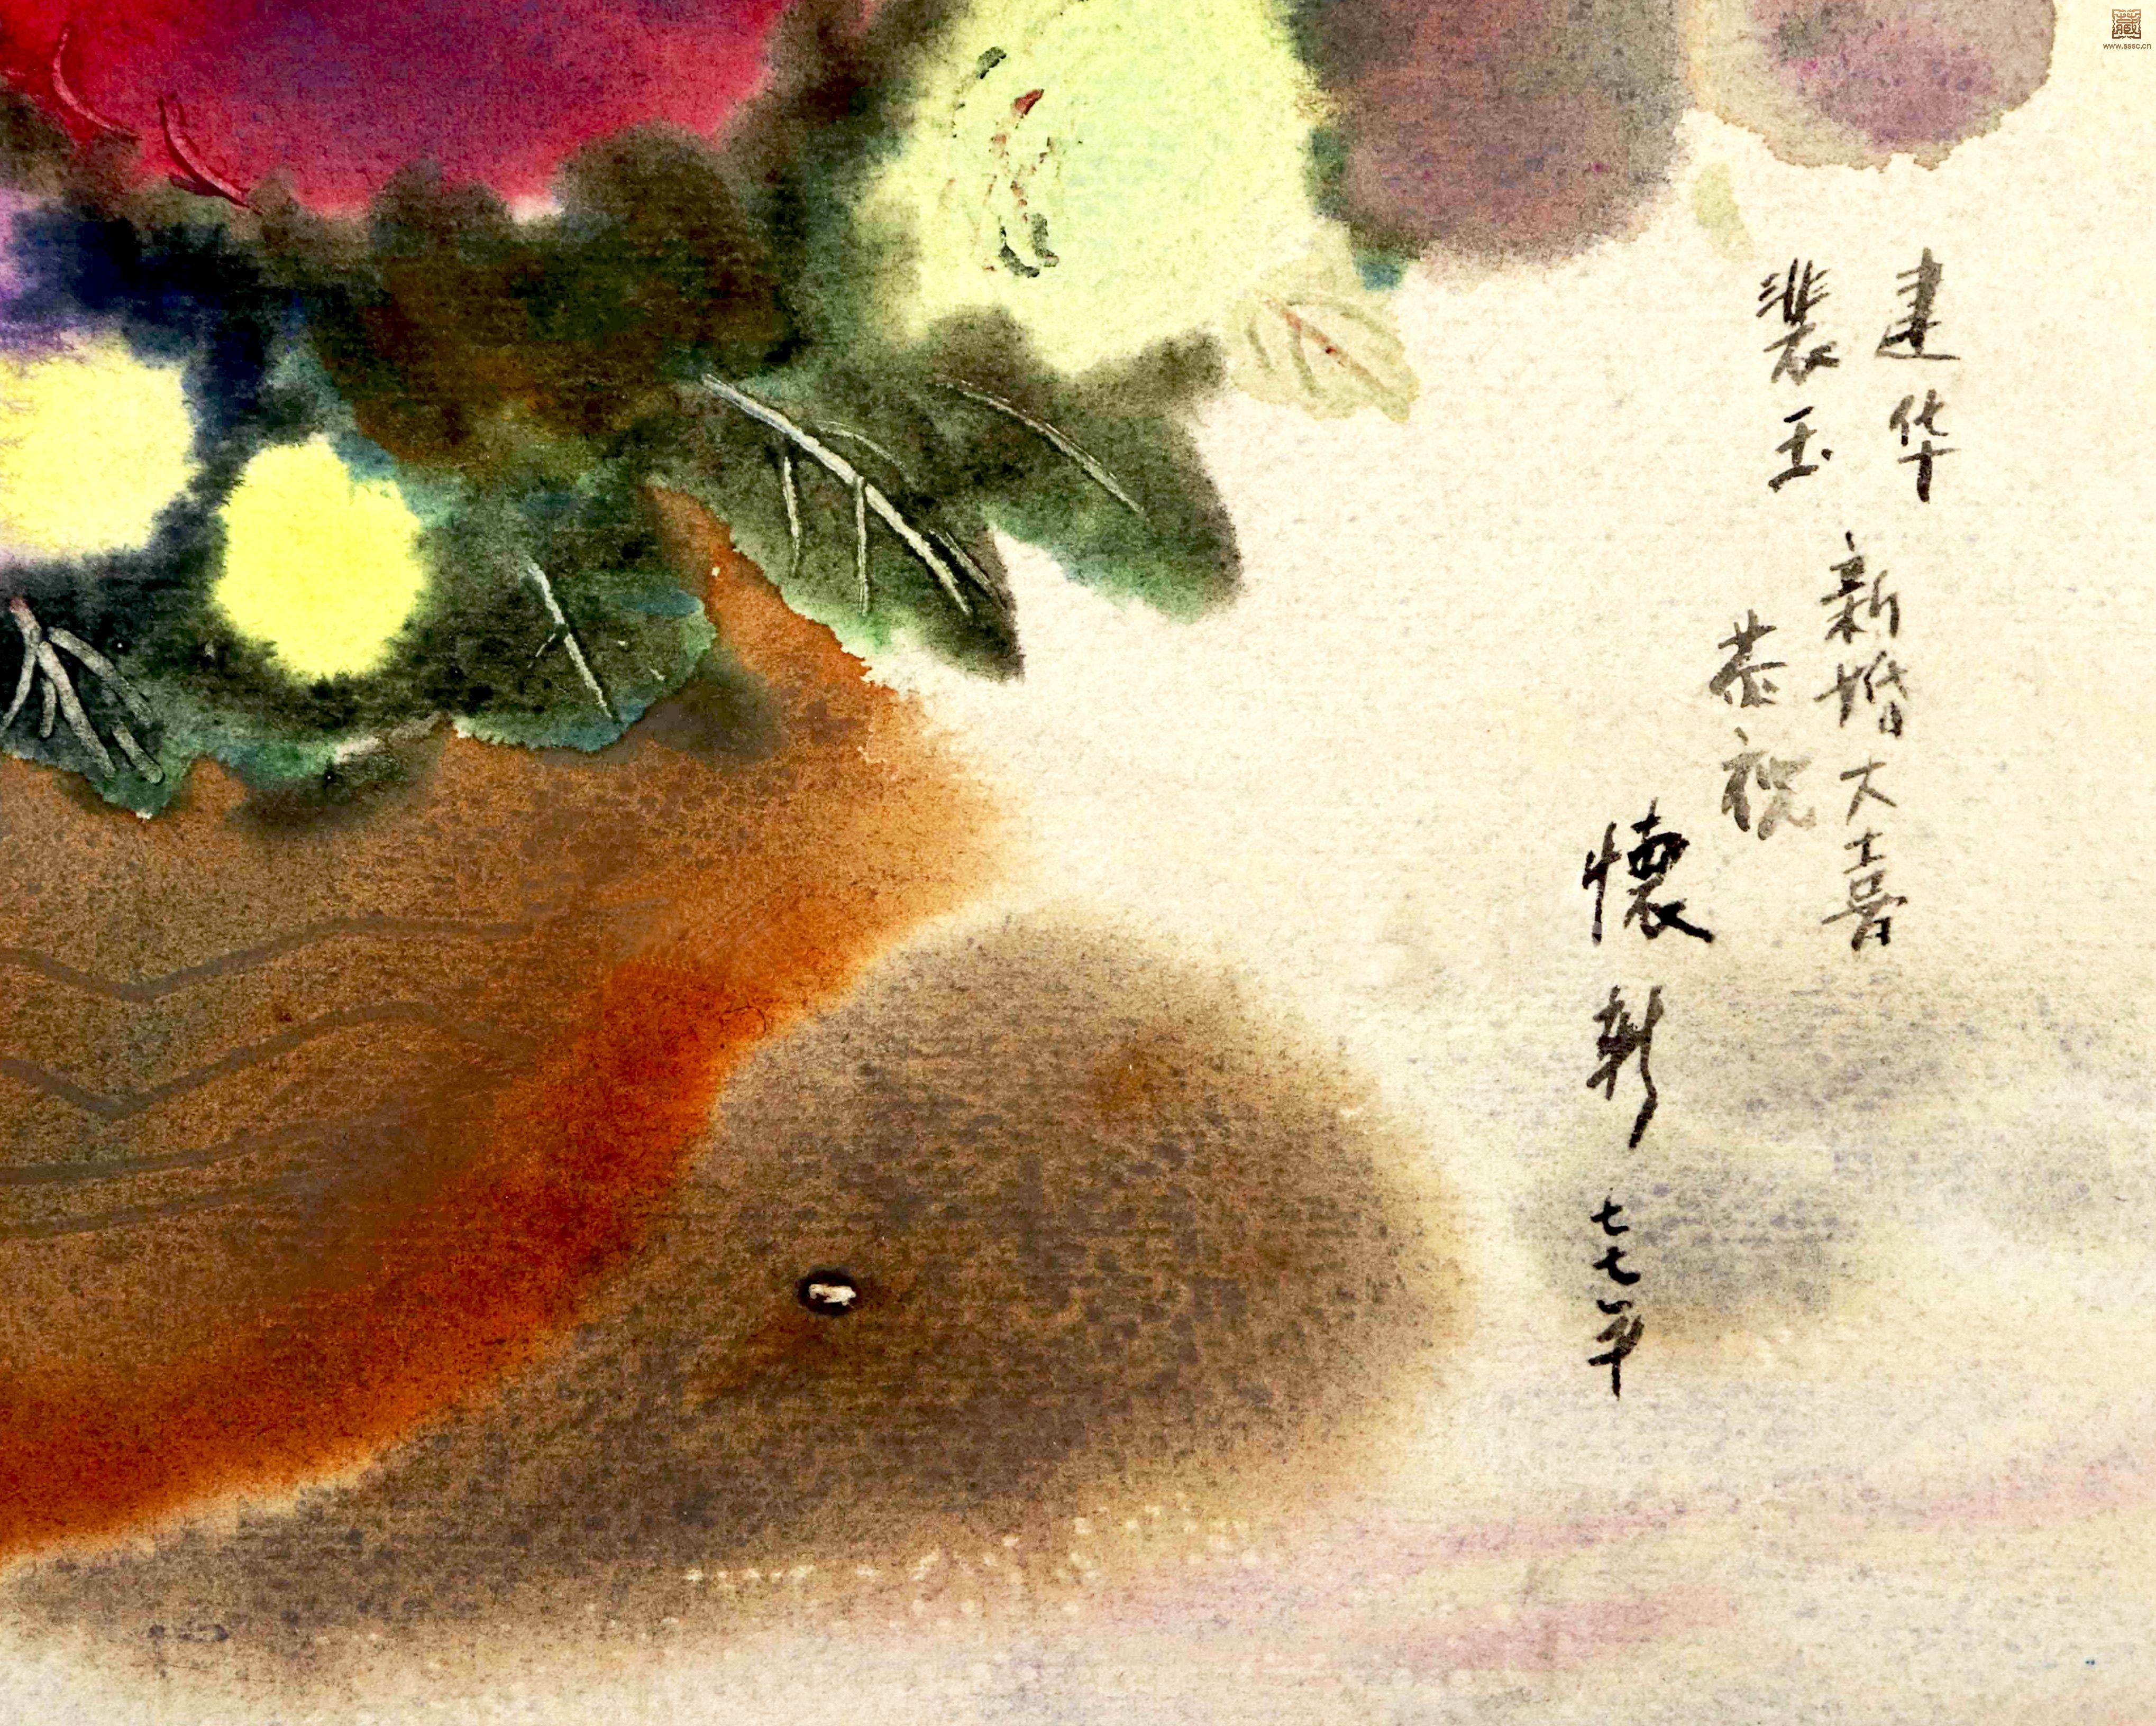 建华
裴玉
新婚大喜
恭祝
懷新 七七年
藏
www.sssc.cn